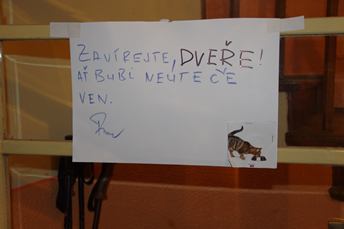 ZAVÍREJTE, DVEŘE!
AŤ BUBI NEUTEČE
VEN.